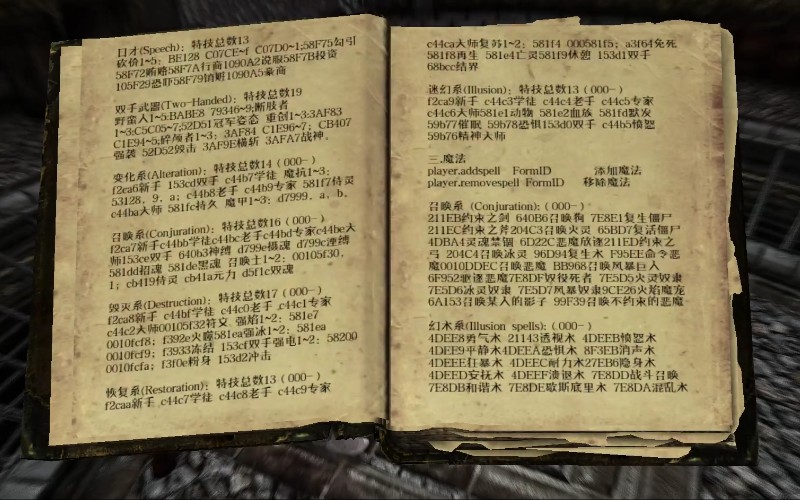 口才(Speech): 特技总数13
砍价1~5: BE128 C07CE~f C07D0~1;58F75勾引
58F72贿赂58F7A行商1090A2说服58F7B投资
105F29恐吓58F79销赃1090A5豪商
双手武器(Two-Handed): 特技总数19
野蛮人1~5:BABE8 79346~9;断肢者
1~3:C5C05~7;52D51冠军姿态 重创1~3:3AF83
C1E94~5;碎颅者1~3: 3AF84 C1E96~7; CB407
强袭 52D52毁击 3AF9E横斩 3AFA7战神。
变化系(Alteration): 特技总数14 (000-)
f2ca6新手 153cd双手 c44b7学徒 魔抗1~3:
53128. 9. a; c44b8老手 c44b9专家 581f7侍灵
c44ba大师 581fc持久 魔甲1~3: d7999. a. b.
召唤系(Conjuration): 特技总数16 (000-)
f2ca7新手c44bb学徒c44bc老手c44bd专家c44be大
师153ce双手 640b3神缚 d799e摄魂 d799c湮缚
581dd招魂 581de黑魂 召唤士1~2: 00105f30.
1; cb419侍灵 cb41a元力 d5f1c双魂
毁灭系(Destruction): 特技总数17 (000-)
f2ca8新手 c44bf学徒 c44c0老手 c44c1专家
c44c2大师00105f32符文 强焰1~2: 581e7
0010fcf8; f392e火朦581ea强冰1~2: 581ea
0010fcf9; f3933冻结 153cf双手强电1~2: 58200
0010fcfa; f3f0e粉身 153d2冲击
恢复系(Restoration): 特技总数13 (000-)
f2caa新手 c44c7学徒 c44c8老手 c44c9专家
c44ca大师复苏1~2: 581f4 000581f5; a3f64免死
581f8再生 581e4亡灵581f9休憩 153d1双手
68bcc结界
迷幻系(Illusion): 特技总数13 (000-)
f2ca9新手 c44c3学徒 c44c4老手 c44c5专家
c44c6大师581e1动物 581e2血族 581fd默发
59b77催眠 59b78恐惧153d0双手 c44b5愤怒
59b76精神大师
三.魔法
player.addspell FormID 添加魔法
player.removespell FormID 移除魔法
召唤系 (Conjuration): (000-)
211EB约束之剑 640B6召唤狗 7E8E1复生僵尸
211EC约束之斧204C3召唤火灵 65BD7复活僵尸
4DBA4灵魂禁锢 6D22C恶魔放逐211ED约束之
弓 204C4召唤冰灵 96D94复生术 F95EE命令恶
魔0010DDEC召唤恶魔 BB968召唤风暴巨人
6F952驱逐恶魔7E8DF奴役死者 7E5D5火灵奴隶
7E5D6冰灵奴隶 7E5D7风暴奴隶9CE26火焰魔宠
6A153召唤某人的影子 99F39召唤不约束的恶魔
幻术系(Illusion spells): (000-)
4DEE8勇气术 21143透视术 4DEEB愤怒术
4DEE9平静术4DEEA恐惧术 8F3EB消声术
4DEEE狂暴术 4DEEC耐力术27EB6隐身术
4DEED安抚术 4DEEF溃退术 7E8DD战斗召唤
7E8DB和谐术 7E8DE歇斯底里术 7E8DA混乱术